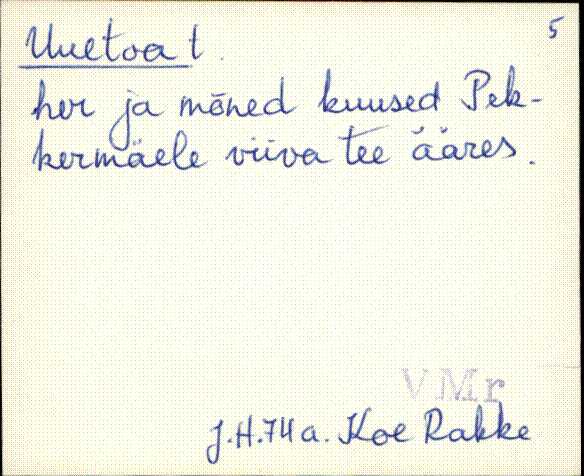 5
Uuetoa t.
her ja mõned kuused Pek-
kermäele viiva tee ääres.
VMr
J.H. 74 a. Koe Rakke